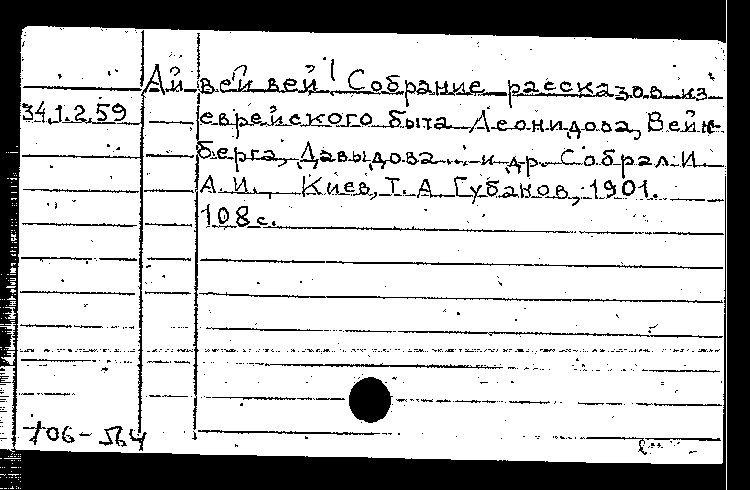 Ай вей вей! Собрание рассказов из
34.1.2.59
еврейского быта Леонидова, Вейн-
берга, Давыдова... и др. Собрал И.
А.И., Киев, Т.А. Губанов, 1901.
108 с.
106-564